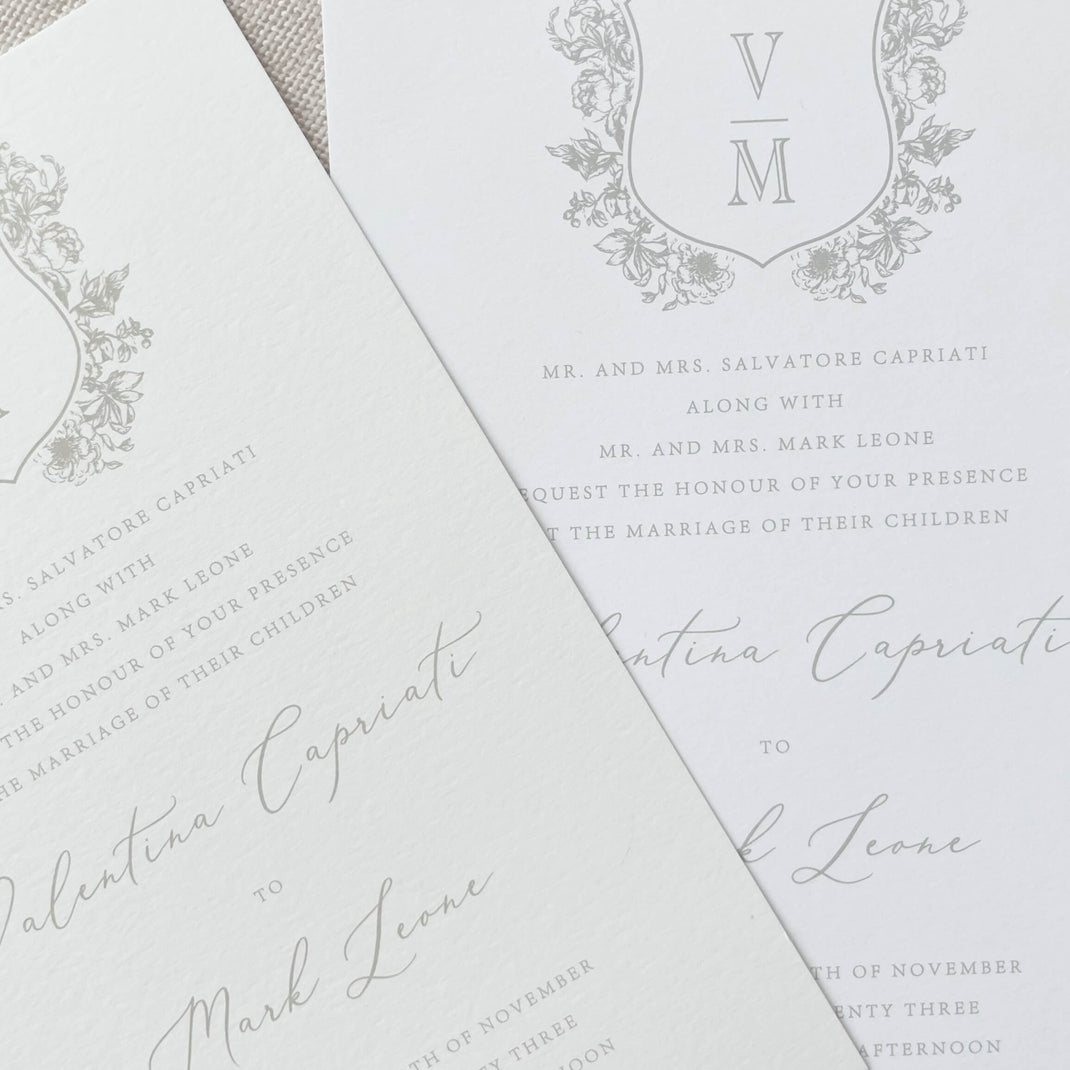 MRS. SALVATORE CAPRIATI
ALONG WITH
AND MRS. MARK LEONE
THE HONOUR OF YOUR PRESENCE
THE MARRIAGE OF THEIR CHILDREN
Valentina Capriati
TO
Mark Leone
TH OF NOVEMBER
TY THREE
V
M
MR. AND MRS. SALVATORE CAPRIATI
ALONG WITH
MR. AND MRS. MARK LEONE
EQUEST THE HONOUR OF YOUR PRESENCE
T THE MARRIAGE OF THEIR CHILDREN
ntina Capriati
TO
k Leone
TH OF NOVEMBER
ENTY THREE
AFTERNOON